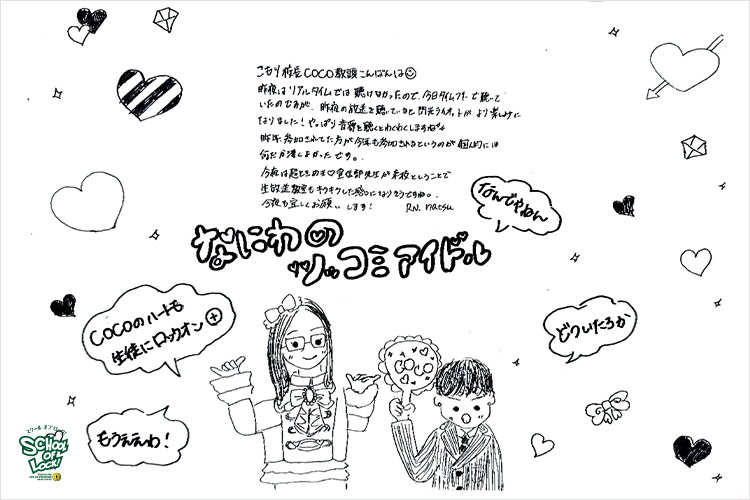 こもり校長COCO教頭こんばんは
昨夜はリアルタイムでは聴けなかったので、今日タイムフリーで聴いて
いたのですが、昨夜の放送を聴いていると閃光ライオットがより楽しみに
なりました！やっぱり音源を聴くとわくわくしますね
昨年参加されてた方が今年も参加されるというのが個人的には
何だか凄しよかったです。
今夜は超ときめき♡宣伝部先生が来校ということで
生放送教室もキラキラした感じになりそうですね。
今夜も宜しくお願いします！ RN. natsu
なんでやねん
なにわの
ツッコミアイドル
COCOのハートも
生徒にロックオン
どついたろか
COCO
もうええわ！
スクールオブロック！
SCHOOL
OF
LOCK!